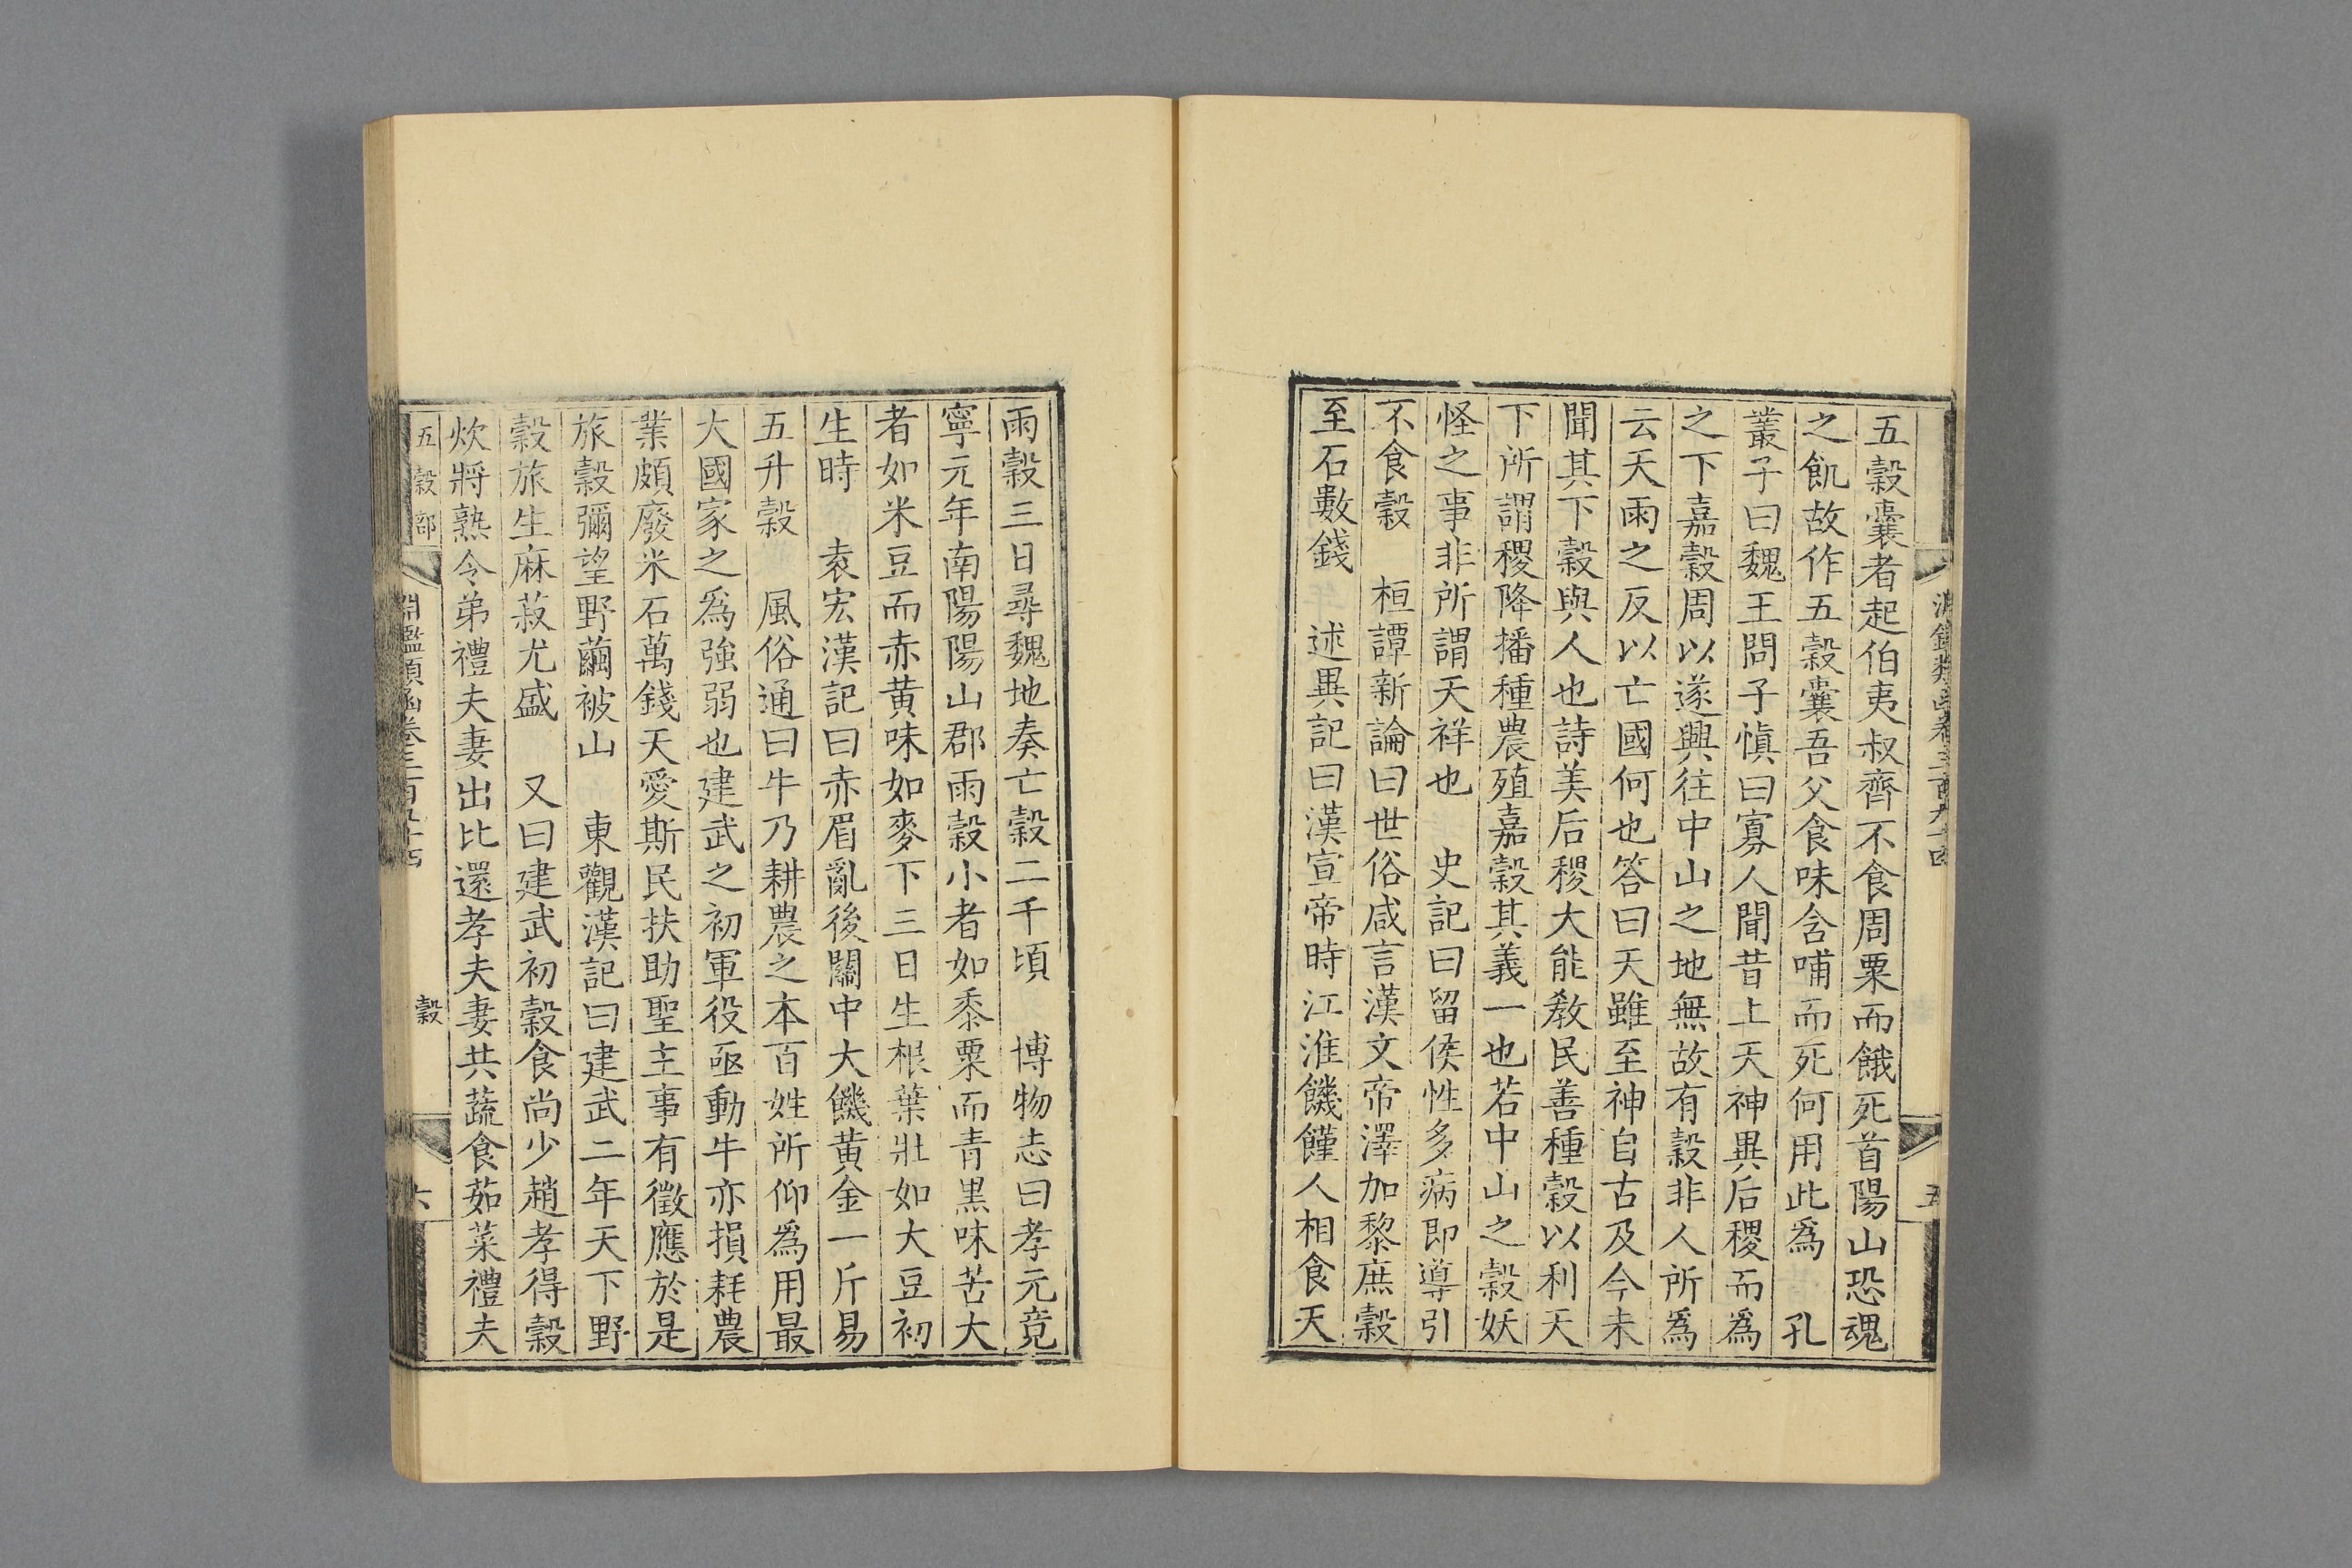 五穀囊者起伯夷叔齊不食周粟而餓死首陽山恐魂
之飢故作五穀囊吾父食味含哺而死何用此爲　孔
叢子曰魏王問子愼曰寡人聞昔上天神異后稷而爲
之下嘉穀周以遂興往中山之地無故有穀非人所爲
云天雨之反以亡國何也答曰天雖至神自古及今未
聞其下穀與人也詩美后稷大能敎民善種穀以利天
下所謂稷降播種農殖嘉穀其義一也若中山之穀妖
怪之事非所謂天祥也　史記曰留侯性多病即導引
不食穀　桓譚新論曰世俗咸言漢文帝澤加黎庶穀
至石數錢　述異記曰漢宣帝時江淮饑饉人相食天
雨穀三日尋魏地奏亡穀二千頃　博物志曰孝元竟
寧元年南陽陽山郡雨穀小者如黍粟而青黑味苦大
者如米豆而赤黄味如麥下三日生根葉壯如大豆初
生時　袁宏漢記曰赤眉亂後關中大饑黄金一斤易
五升穀　風俗通曰牛乃耕農之本百姓所仰爲用最
大國家之爲強弱也建武之初軍役亟動牛亦損耗農
業頗廢米石萬錢天愛斯民扶助聖主事有徵應於是
旅穀彌望野繭被山　東觀漢記曰建武二年天下野
穀旅生麻菽尤盛　又曰建武初穀食尚少趙孝得穀
炊將熟令弟禮夫妻出比還孝夫妻共蔬食茹菜禮夫
五穀部
淵鑑類函卷三百九十四
穀
六